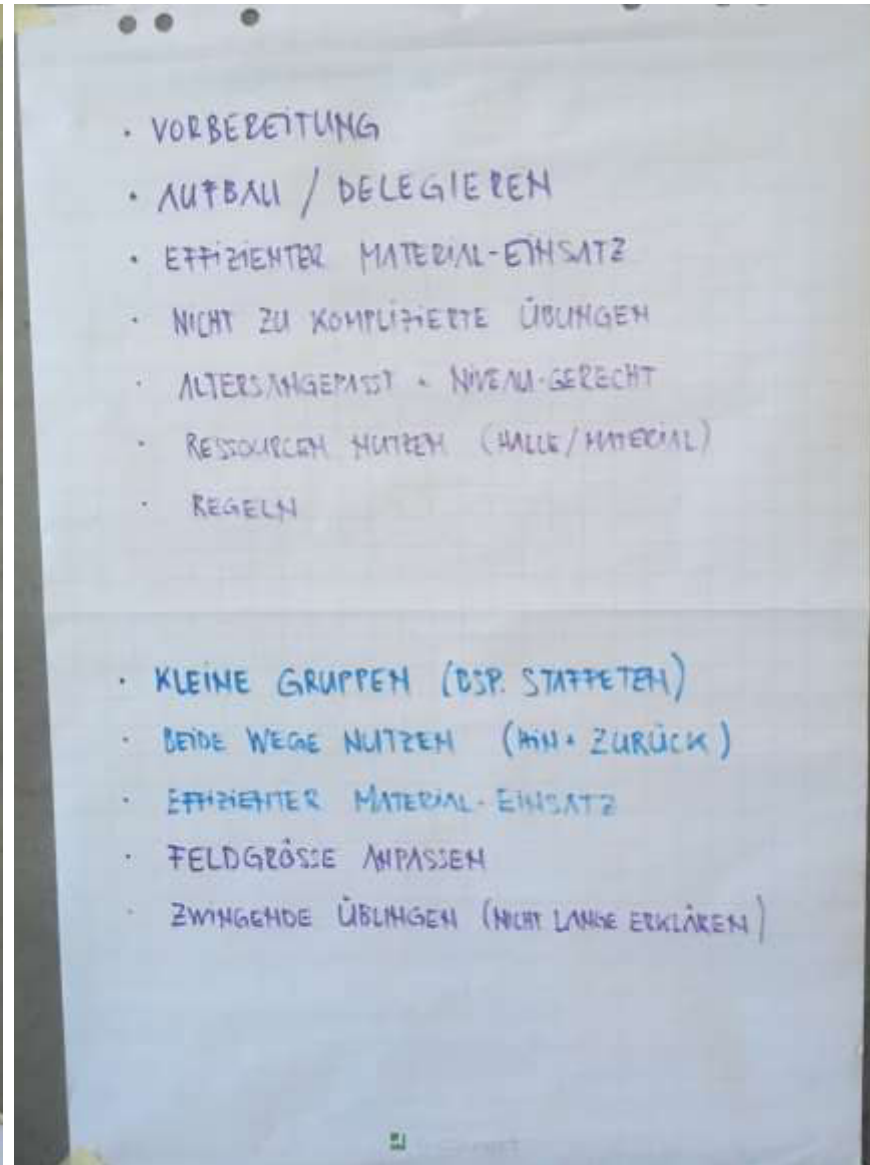 · VORBEREITUNG
· AUFBAU / DELEGIEREN
· EFFIZIENTER MATERIAL-EINSATZ
· NICHT ZU KOMPLIZIERTE ÜBUNGEN
· ALTERSANGEPASST + NIVEAU-GERECHT
· RESSOURCEN NUTZEN (HALLE/MATERIAL)
· REGELN
· KLEINE GRUPPEN (BSP. STAFFETEN)
· BEIDE WEGE NUTZEN (HIN + ZURÜCK)
· EFFIZIENTER MATERIAL-EINSATZ
· FELDGRÖSSE ANPASSEN
· ZWINGENDE ÜBUNGEN (NICHT LANGE ERKLÄREN)